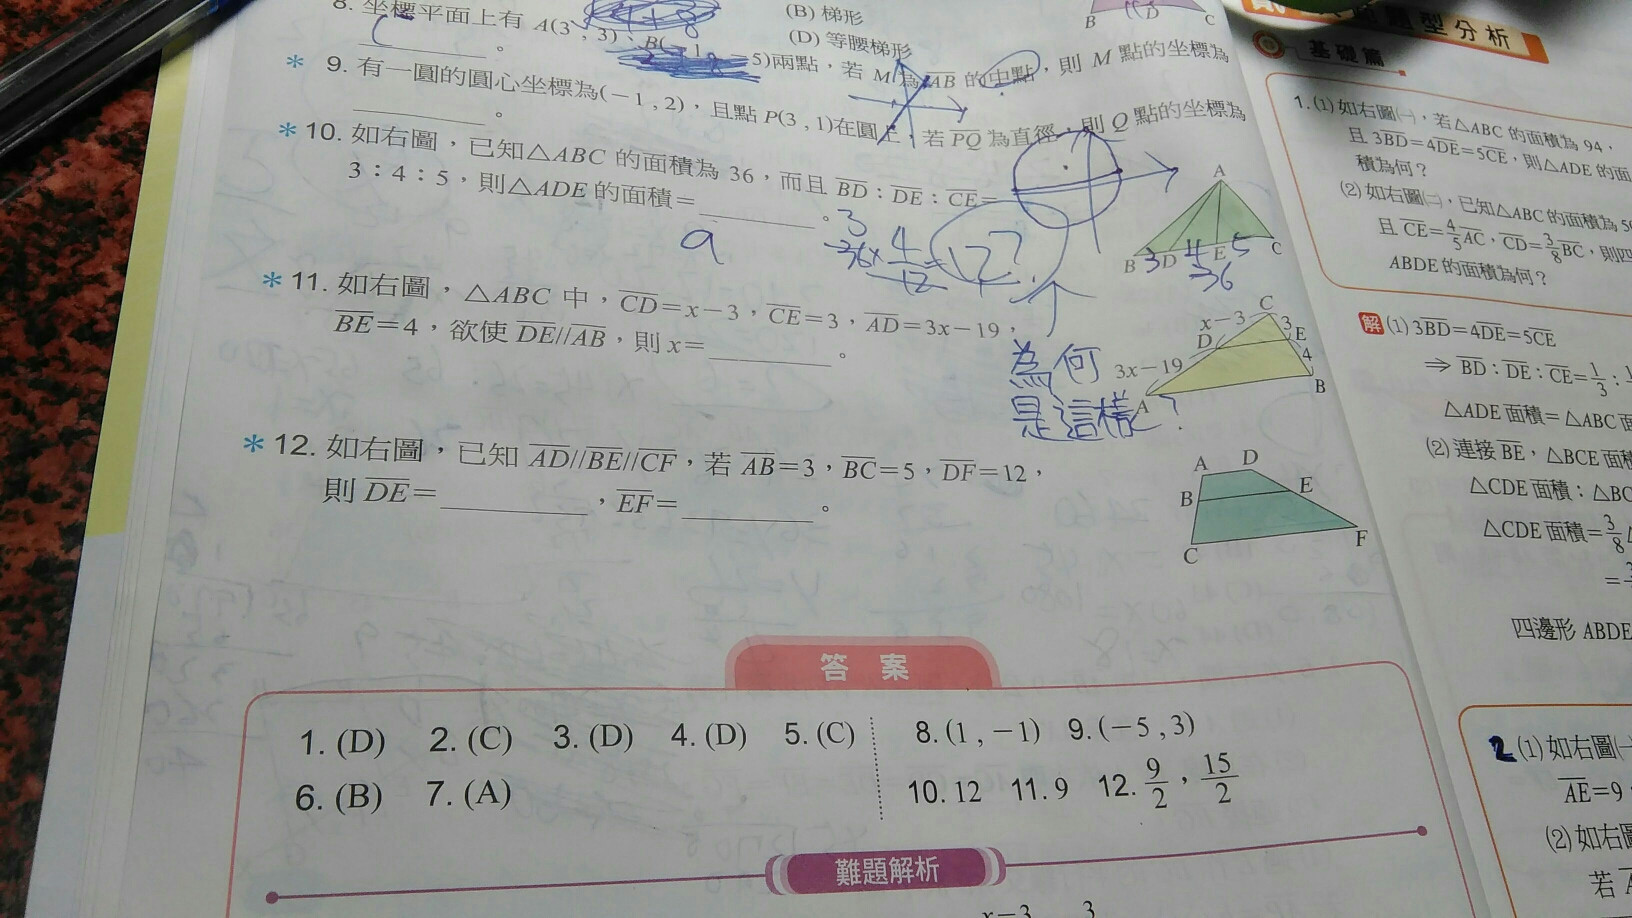 8. 坐標平面上有 A(3 , 3)、B(-1 , -5)兩點,若 M 為 AB 的中點,則 M 點的坐標為
(B) 梯形
(D) 等腰梯形
B D C
。
* 9. 有一圓的圓心坐標為(-1 , 2),且點 P(3 , 1)在圓上,若 PQ 為直徑,則 Q 點的坐標為
。
* 10. 如右圖,已知△ABC 的面積為 36,而且 BD:DE:CE=
3:4:5,則△ADE 的面積= 。
9
3
36×4/12=12?
A
B 3 D 4 E 5 C
36
* 11. 如右圖,△ABC 中,CD=x-3,CE=3,AD=3x-19,
BE=4,欲使 DE//AB,則 x= 。
為何
是這樣?
C
x-3 3 E
D 4
3x-19 B
A
* 12. 如右圖,已知 AD//BE//CF,若 AB=3,BC=5,DF=12,
則 DE= ,EF= 。
A D
B E
C F
答 案
1. (D) 2. (C) 3. (D) 4. (D) 5. (C)
6. (B) 7. (A)
8. (1 , -1) 9. (-5 , 3)
10. 12 11. 9 12. 9/2 , 15/2
難題解析
x-3 3
型分析
基礎篇
1. (1) 如右圖㈠,若△ABC 的面積為 94,
且 3BD=4DE=5CE,則△ADE 的面
積為何?
(2) 如右圖㈡,已知△ABC 的面積為
且 CE=4/5 AC,CD=3/8 BC,則四
ABDE 的面積為何?
解 (1) 3BD=4DE=5CE
⇒ BD:DE:CE=1/3:
△ADE 面積=△ABC 面
(2) 連接 BE,△BCE 面積
△CDE 面積:△BC
△CDE 面積=3/8
=
四邊形 ABDE
2 (1) 如右圖㈠
AE=9
(2) 如右圖
若